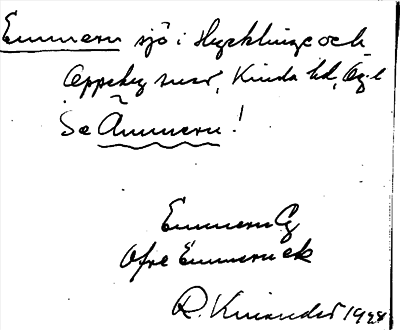 Emmern sjö i Hycklinge och
Oppeby snr, Kinda hd, Ög. l
Se Ämmern!
Emmern Ög
Ofre Emmern ek
R. Kinander 1928